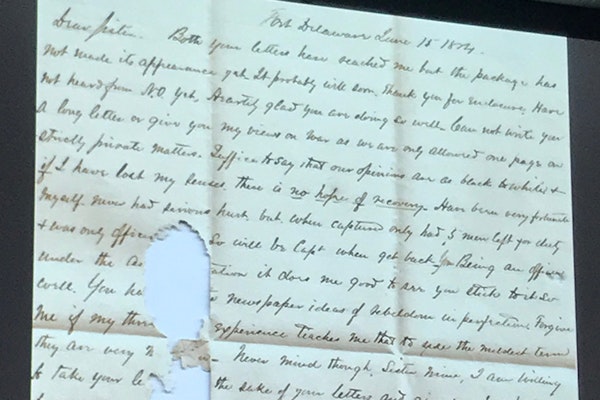 Fort Delaware June 15 1864.
Dear Sister. Both your letters have reached me but the package has
not made its appearance yet. It probably will soon. Thank you for enclosure. Have
not heard from N.O. yet. Heartily glad you are doing so well. Can not write you
a long letter or give you my views on War as we are only allowed one page on
strictly private matters. Suffice to say that our opinions are as black to white &
if I have lost my senses there is no hope of recovery. Have been very fortunate
myself never had serious hurt but when captured only had 5 men left for duty
& was only officer So will be Capt when get back. Being an
under the it does me good to see you stick to it so
well. You ha newspaper ideas of rebeldom in perfection. Forgive
me if my three experience teaches me that to use the mildest term
they are very Never mind though, Sister mine, I am willing
to take your le the sake of your letters and